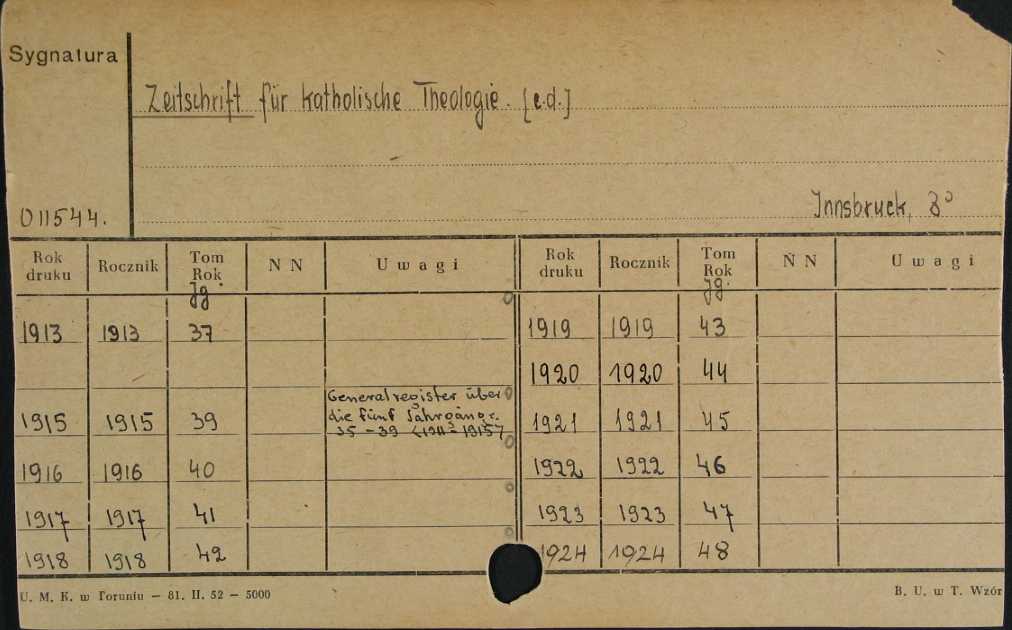 Sygnatura
Zeitschrift für katholische Theologie. [e.d.]
011544.
Innsbruck, 8°
Rok druku Rocznik Tom Rok Jg. N N Uwagi Rok druku Rocznik Tom Rok Jg. N N Uwagi
1913 1913 37 1919 1919 43
1920 1920 44
Generalregister über
die fünf Jahrgänge.
35 – 39 (1911 – 1915)
1915 1915 39 1921 1921 45
1916 1916 40 1922 1922 46
1917 1917 41 1923 1923 47
1918 1918 42 1924 1924 48
U. M. K. w Toruniu — 81. II. 52 — 5000 B. U. w T. Wzór